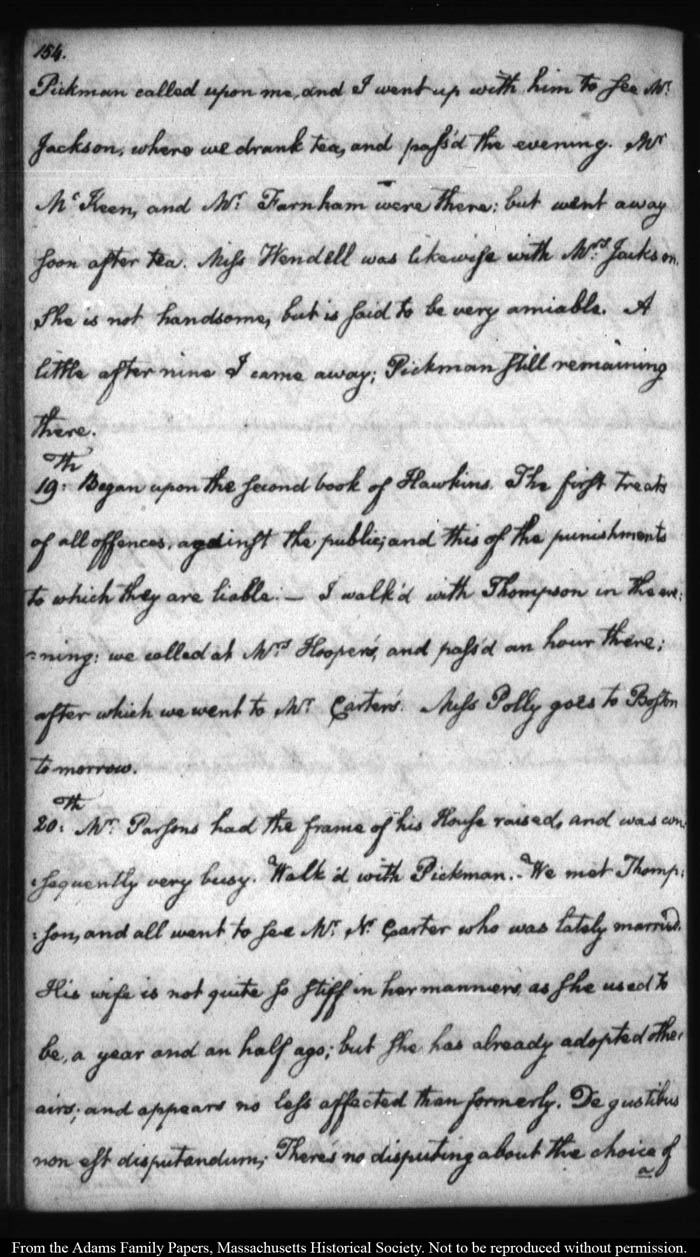 154.
Pickman called upon me, and I went up with him to see Mr
Jackson, where we drank tea, and pass'd the evening. Mr
Mc Keen, and Mr. Farnham were there; but went away
soon after tea. Miss Wendell was likewise with Mrs. Jackson.
She is not handsome, but is said to be very amiable. A
little after nine I came away; Pickman still remaining
there.
19:th Began upon the second book of Hawkins. The first treats
of all offences, against the public; and this of the punishments
to which they are liable.— I walk'd with Thompson in the eve:
=ning: we called at Mrs Hooper's, and pass'd an hour there;
after which we went to Mr Carter's. Miss Polly goes to Boston
to morrow.
20:th Mr. Parsons had the frame of his House raised, and was con
:sequently very busy. Walk'd with Pickman.- We met Thomp:
:son, and all went to see Mr. N. Carter who was lately married.
His wife is not quite so stiff in her manners, as she used to
be, a year and an half ago; but she has already adopted other
airs; and appears no less affected than formerly. De gustibus
non est disputandum; There's no disputing about the choice of
a
From the Adams Family Papers, Massachusetts Historical Society. Not to be reproduced without permission.